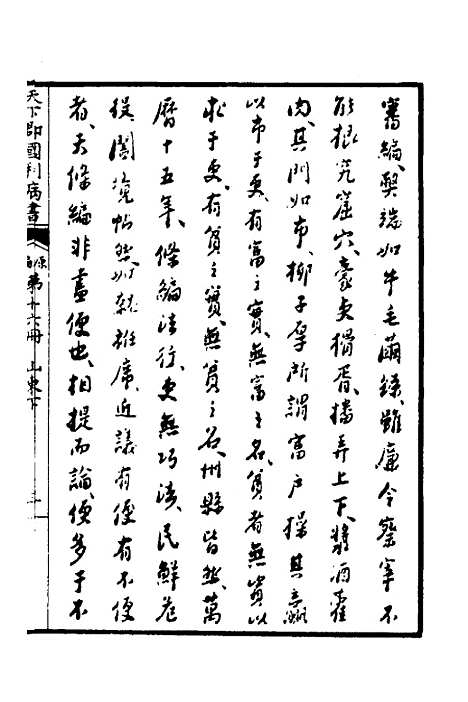 審編弊端如牛毛繭絲雖廉令察宰不
能根究窟穴豪吏猾胥播弄上下漿酒藿
肉其門如市柳子厚所謂富戶操其贏
以市于吏有富之實無富之名貧者無貲以
求于吏有貧之實無貧之名州縣皆然萬
曆十五年條編法行吏無巧法民鮮危
役闔境帖然如就衽席近議有便有不便
者夫條編非盡便也相提而論便多于不
天下郡國利病書
原編第十六冊 山東下